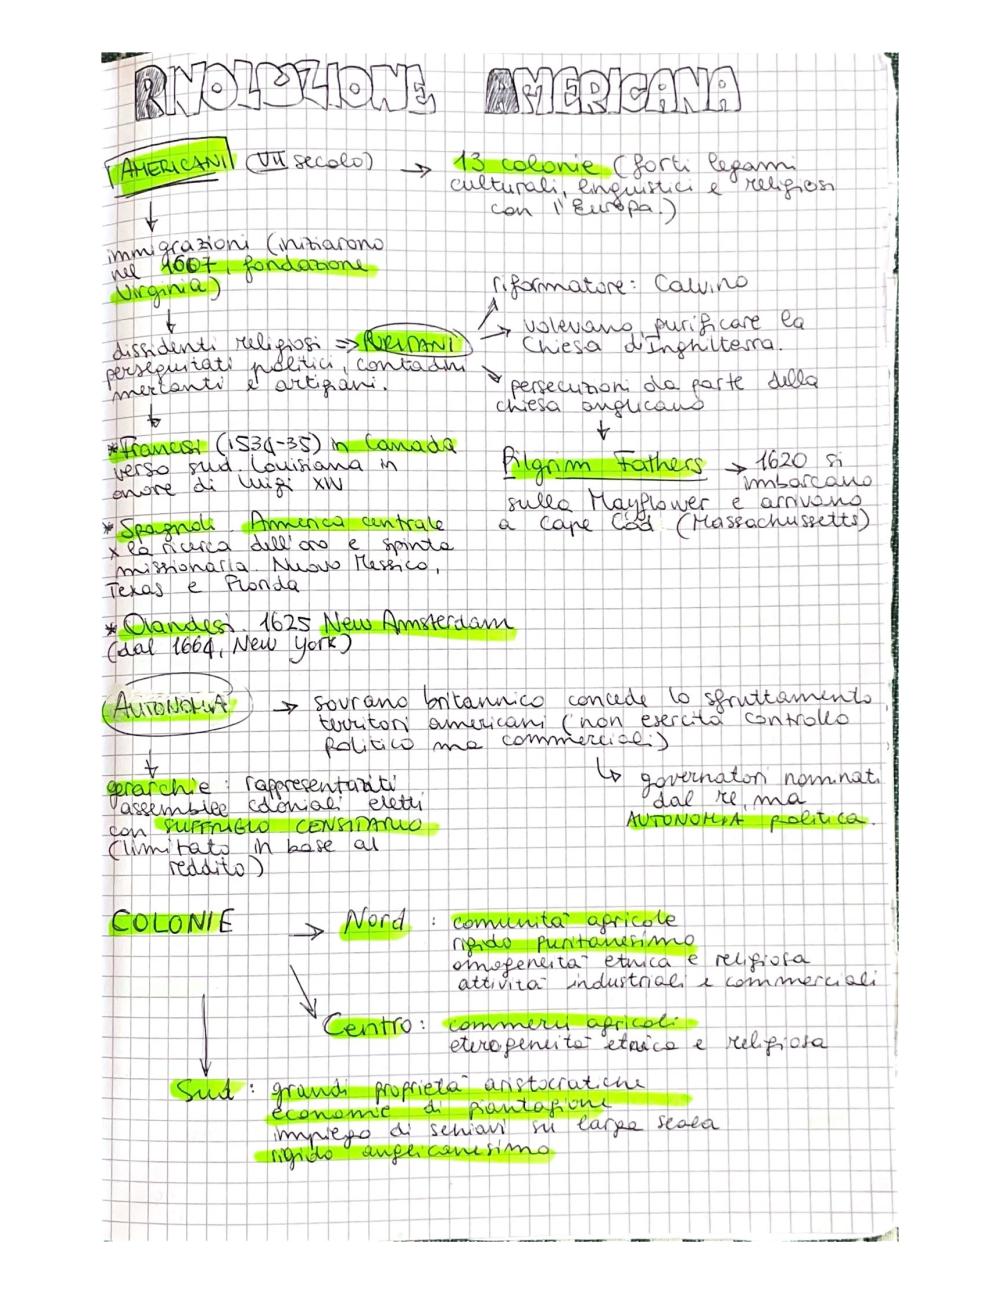 RIVOLUZIONE AMERICANA
AMERICANI (VII secolo) → 13 colonie (forti legami
culturali, linguistici e religiosi
con l'Europa.)
immigrazioni (iniziarono
nel 1607, fondazione
Virginia)
dissidenti religiosi ⇒ PURITANI
perseguitati politici, contadini
mercanti e artigiani.
riformatore: Calvino
→ volevano purificare la
Chiesa d'Inghilterra.
persecuzioni da parte della
chiesa anglicana
Pilgrim Fathers → 1620 si
imbarcano
sulla Mayflower e arrivano
a Cape Cod (Massachussetts)
*Francesi (1534-35) in Canada
verso sud. Louisiana in
onore di Luigi XIV
*Spagnoli. America centrale
x la ricerca dell'oro e spinta
missionaria. Nuovo Messico,
Texas e Florida
*Olandesi. 1625 New Amsterdam
(dal 1664, New York)
AUTONOMIA → sovrano britannico concede lo sfruttamento
territori americani (non esercita controllo
politico ma commerciali)
↳ governatori nominati
dal re, ma
AUTONOMIA politica.
gerarchie: rappresentatiti
assemblee coloniali eletti
con SUFFRAGIO CENSITARIO
(limitato in base al
reddito)
COLONIE → Nord: comunità agricole
rigido puritanesimo
omogeneità etnica e religiosa
attività industriali e commerciali
Centro: commerci agricoli
eterogeneità etnica e religiosa
Sud: grandi proprietà aristocratiche
economie di piantagione
impiego di schiavi su larga scala
rigido anglicanesimo